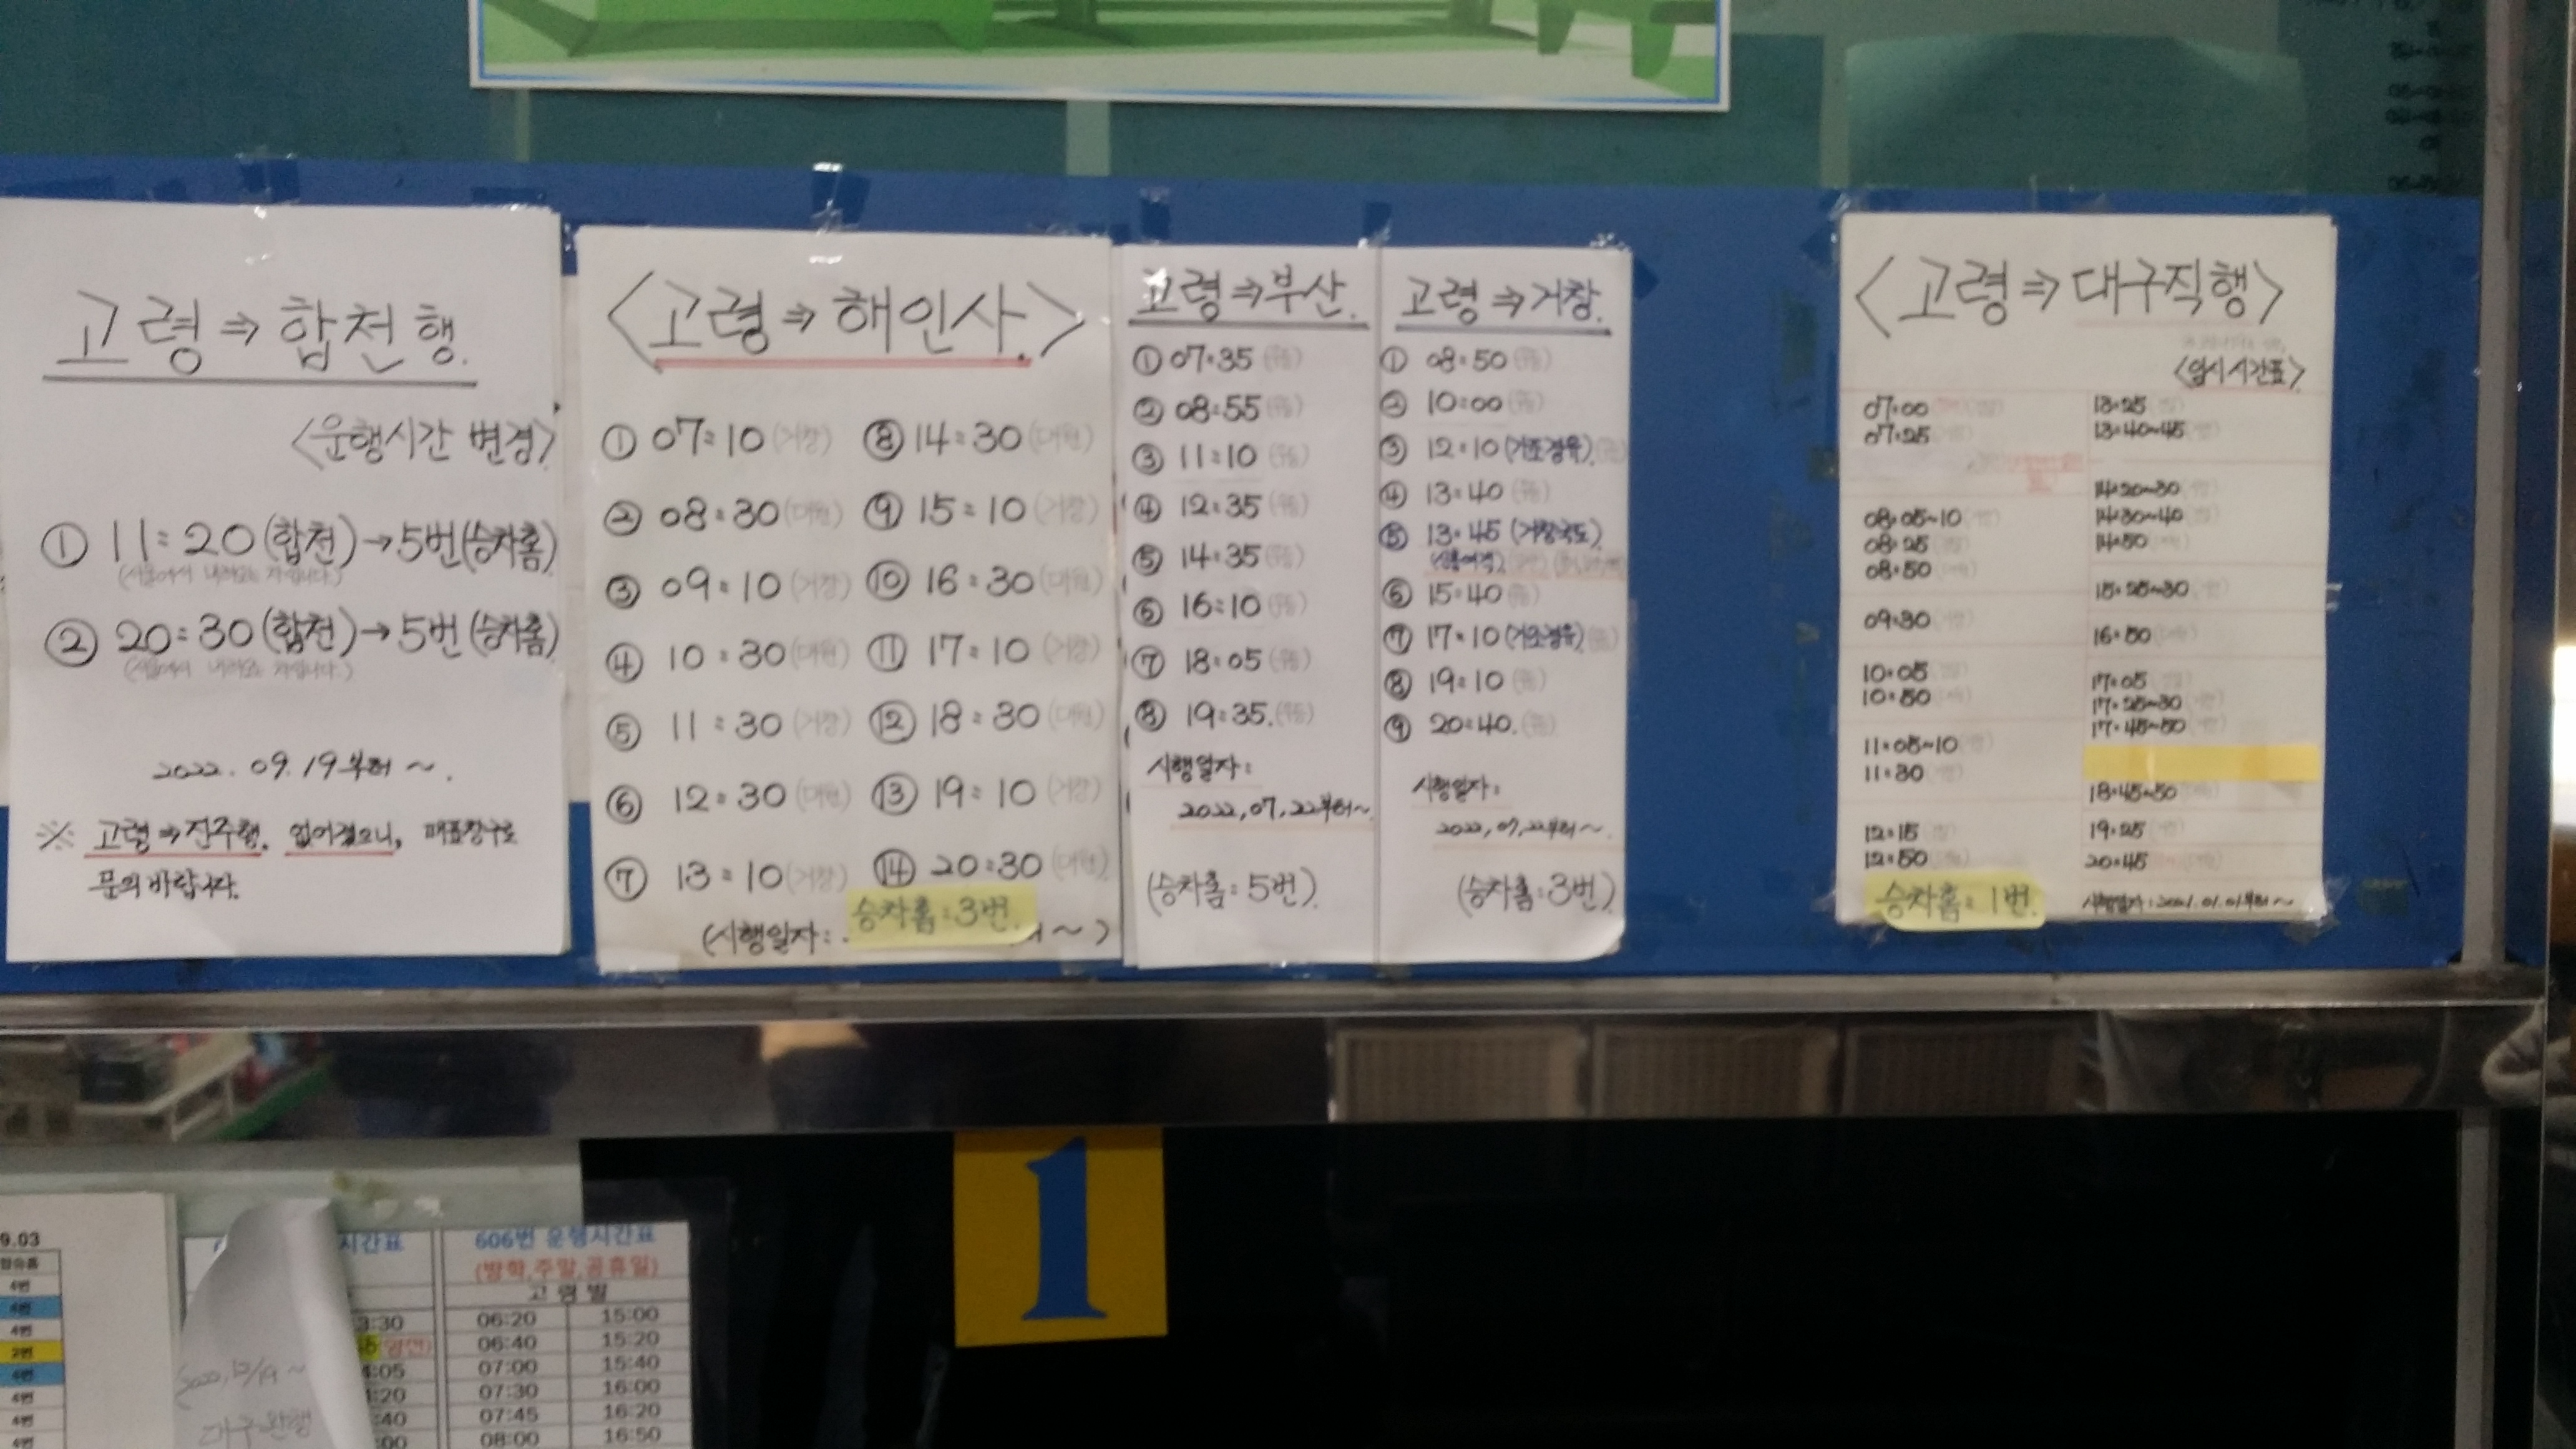 고령⇒합천행.
<운행시간 변경>
① 11:20(합천)→5번(승차홈)
② 20:30(합천)→5번(승차홈)
2022. 09. 19부터 ~.
※ 고령⇒진주행. 없어졌으니, 매표창구로
문의 바랍니다.
<고령⇒해인사.>
① 07:10(거창)
② 08:30(대원)
③ 09:10(거창)
④ 10:30(대원)
⑤ 11:30(거창)
⑥ 12:30(대원)
⑦ 13:10(거창)
⑧ 14:30(대원)
⑨ 15:10(거창)
⑩ 16:30(대원)
⑪ 17:10(거창)
⑫ 18:30(대원)
⑬ 19:10(거창)
⑭ 20:30(대원)
승차홈:3번.
(시행일자: ~)
고령⇒부산.
① 07:35
② 08:55
③ 11:10
④ 12:35
⑤ 14:35
⑥ 16:10
⑦ 18:05
⑧ 19:35.
시행일자:
2022, 07, 22부터~.
(승차홈:5번).
고령⇒거창.
① 08:50
② 10:00
③ 12:10(가조경유).
④ 13:40
⑤ 13:45 (거창국도).
⑥ 15:40
⑦ 17:10(가조경유)
⑧ 19:10
⑨ 20:40.
시행일자:
2022, 07, 22부터~.
(승차홈:3번).
<고령⇒대구직행>
<임시시간표>
07:00
07:25
08:05~10
08:25
08:50
09:30
10:05
10:50
11:05~10
11:30
12:15
12:50
승차홈:1번.
13:25
13:40~45
14:20~30
14:30~40
14:50
15:25~30
16:50
17:05
17:25~30
17:45~50
18:45~50
19:25
20:45
시행일자:2021.01.01부터~
1
9.03
4번
4번
4번
2번
4번
4번
4번
4번
시간표
3:30
4:05
:20
:40
:00
대구완행
606번 운행시간표
(방학,주말,공휴일)
고 령 발
06:20 15:00
06:40 15:20
07:00 15:40
07:30 16:00
07:45 16:20
08:00 16:50